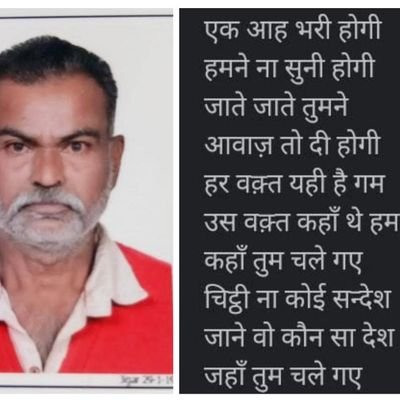 एक आह भरी होगी
हमने ना सुनी होगी
जाते जाते तुमने
आवाज़ तो दी होगी
हर वक़्त यही है गम
उस वक़्त कहाँ थे हम
कहाँ तुम चले गए
चिट्ठी ना कोई सन्देश
जाने वो कौन सा देश
जहाँ तुम चले गए